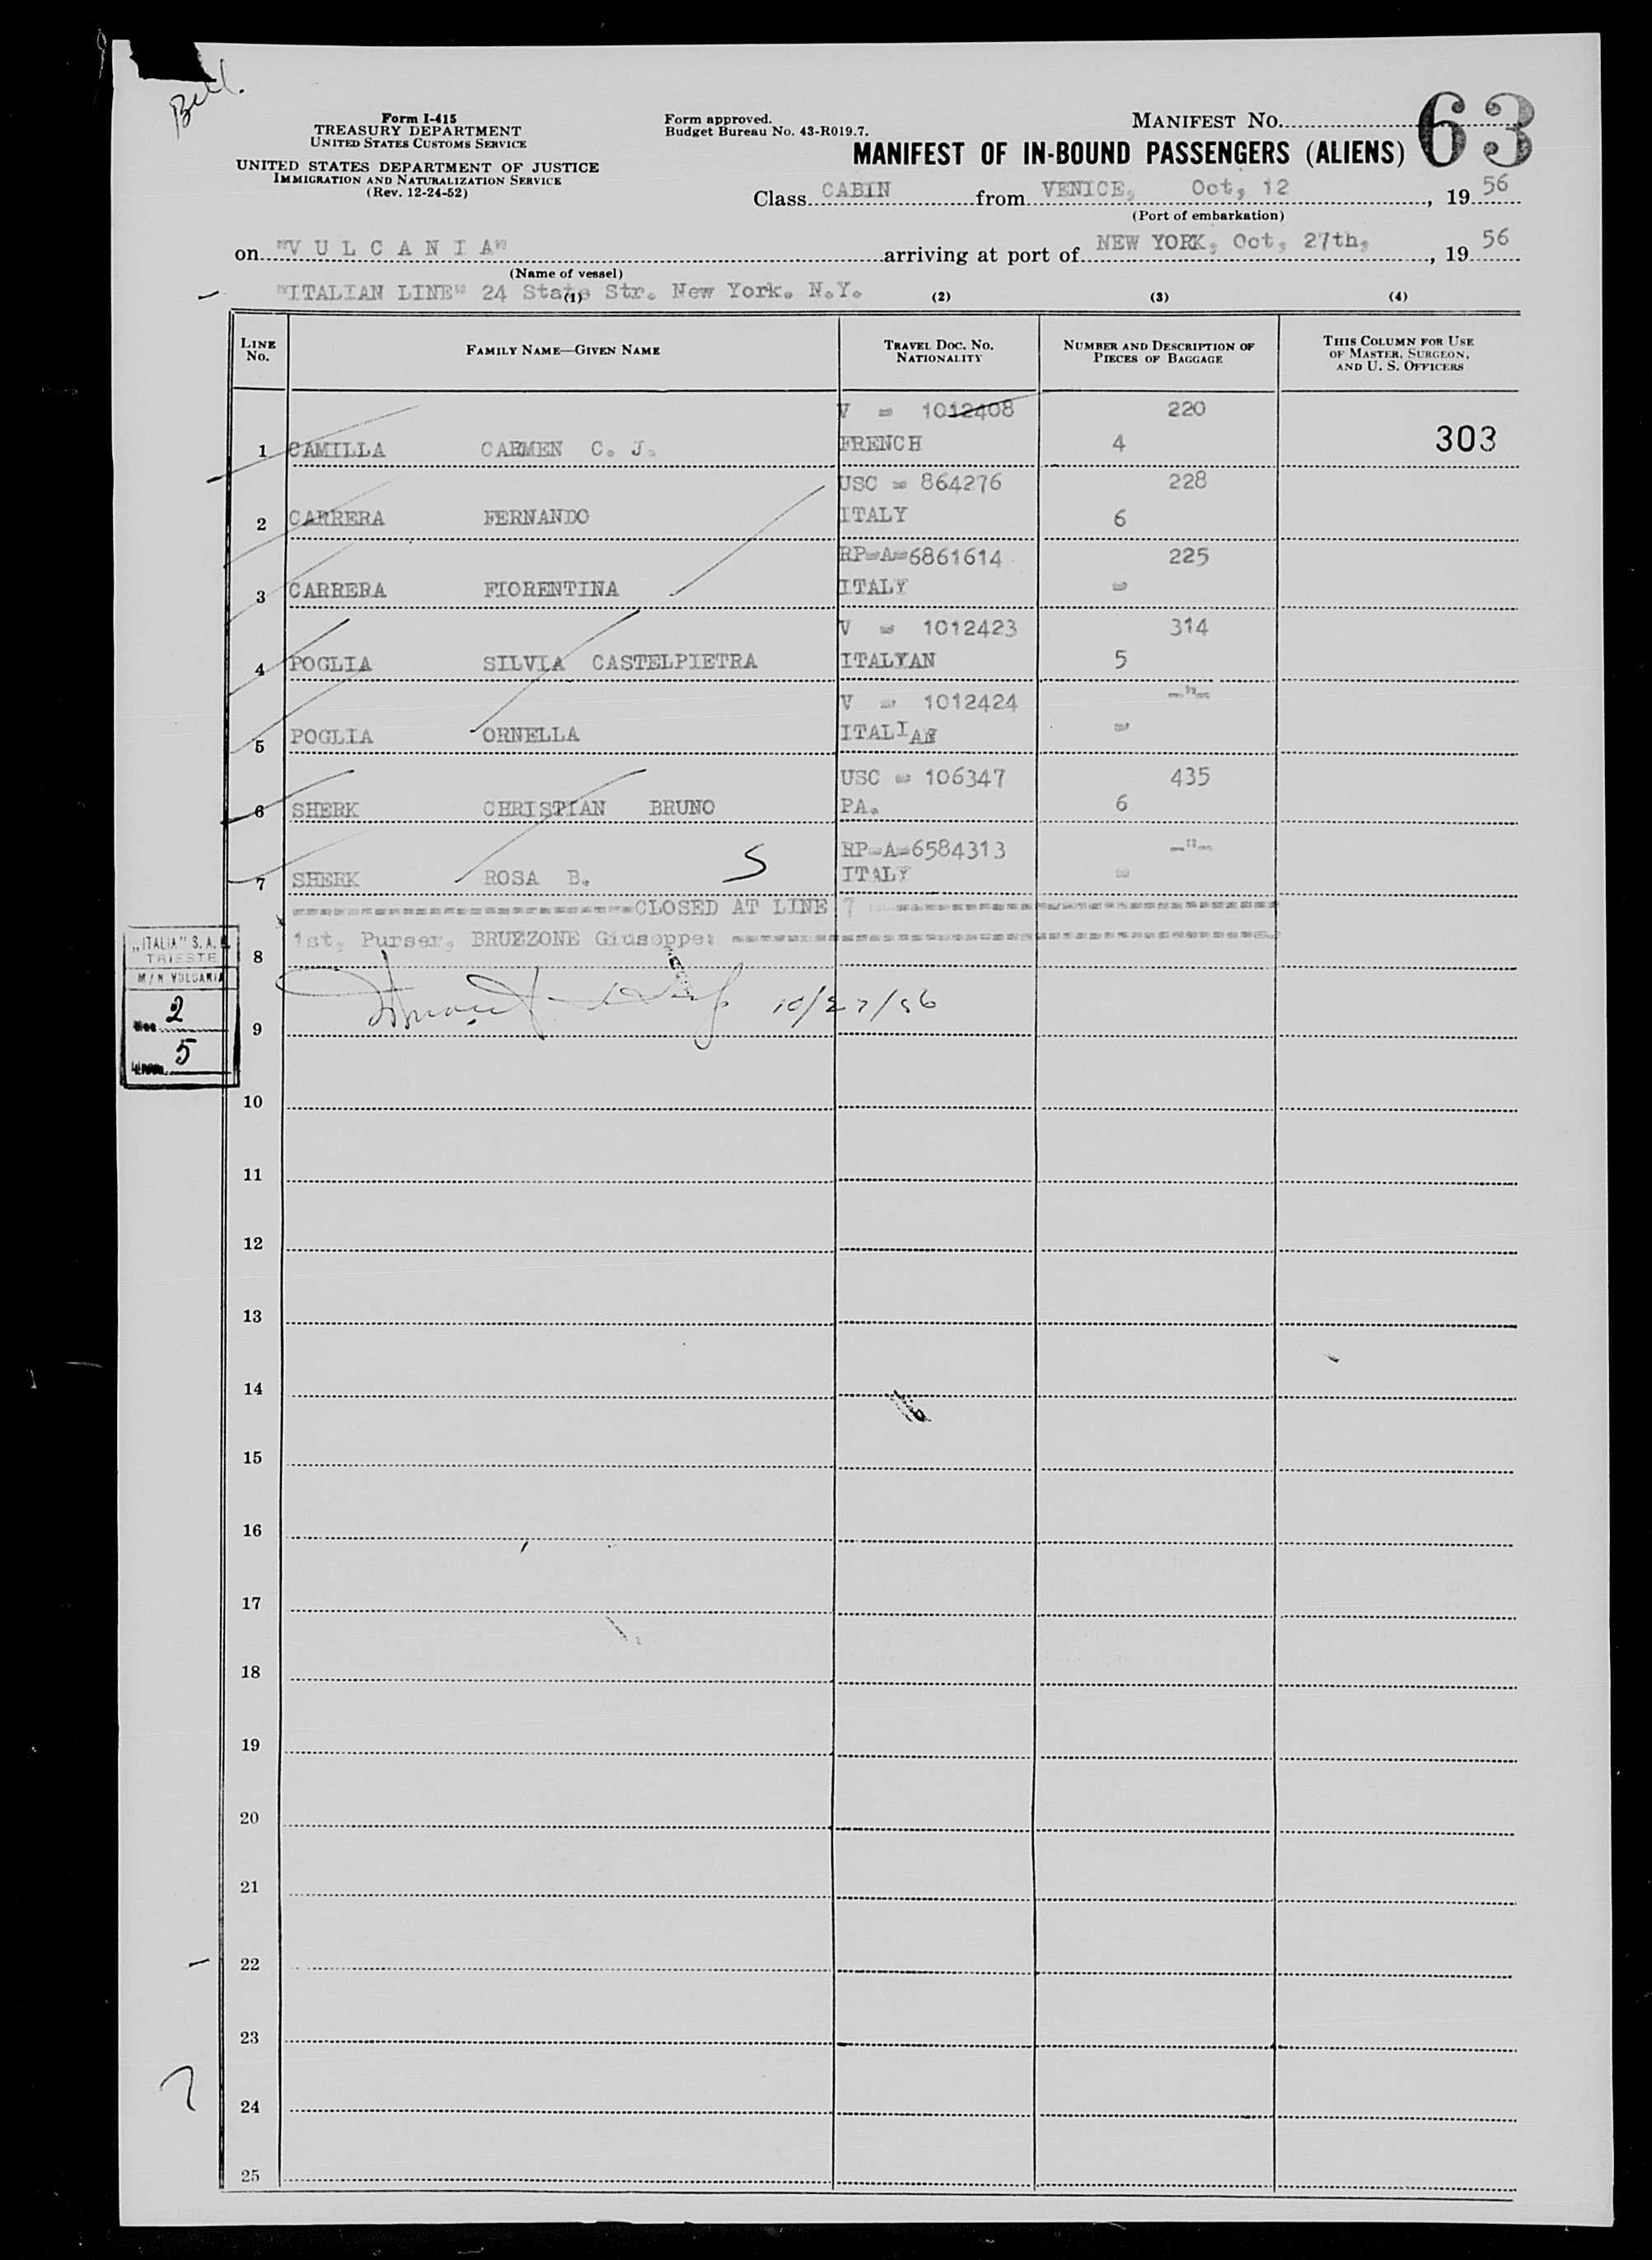 Form I-415
TREASURY DEPARTMENT
UNITED STATES CUSTOMS SERVICE
UNITED STATES DEPARTMENT OF JUSTICE
IMMIGRATION AND NATURALIZATION SERVICE
(Rev. 12-24-52)
Form approved.
Budget Bureau No. 43-R019.7.
MANIFEST NO. 63
MANIFEST OF IN-BOUND PASSENGERS (ALIENS)
Class CABIN from VENICE, Oct, 12, 19 56
(Port of embarkation)
on "V U L C A N I A" arriving at port of NEW YORK, Oct, 27th, , 19 56
(Name of vessel)
"ITALIAN LINE" 24 State Str. New York. N.Y.
(1) (2) (3) (4)
LINE NO. FAMILY NAME—GIVEN NAME TRAVEL DOC. NO. NATIONALITY NUMBER AND DESCRIPTION OF PIECES OF BAGGAGE THIS COLUMN FOR USE OF MASTER, SURGEON, AND U. S. OFFICERS
V = 1012408 220
1 CAMILLA CARMEN C. J. FRENCH 4 303
USC = 864276 228
2 CARRERA FERNANDO ITALY 6
RP=A=6861614 225
3 CARRERA FIORENTINA ITALY =
V = 1012423 314
4 POGLIA SILVIA CASTELPIETRA ITALYAN 5
V = 1012424 -"-
5 POGLIA ORNELLA ITALIAN =
USC = 106347 435
6 SHERK CHRISTIAN BRUNO PA. 6
RP=A=6584313 -"-
7 SHERK ROSA B. S ITALY =
CLOSED AT LINE 7
1st, Purser, BRUZZONE Giuseppe:
8
10/27/56
9
„ITALIA" S. A.
TRIESTE
M/N VULCANIA
2
5
10
11
12
13
14
15
16
17
18
19
20
21
22
23
24
25